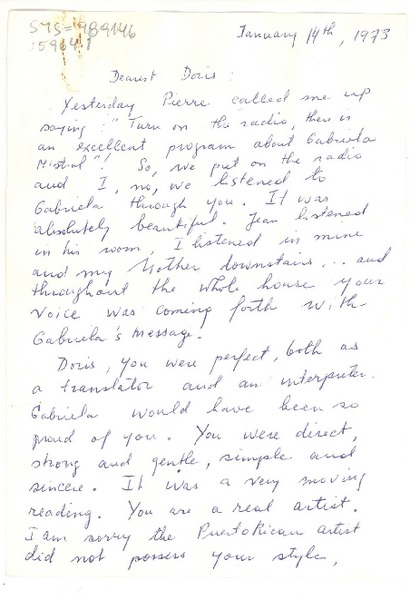 SYS=989146
:59641
January 14th, 1973
Dearest Doris:
Yesterday Pierre called me up
saying: "Turn on the radio, there is
an excellent program about Gabriela
Mistral"! So, we put on the radio
and I, no, we listened to
Gabriela through you. It was
absolutely beautiful. Jean listened
in his room, I listened in mine
and my Mother downstairs... and
throughout the whole house your
voice was coming forth with
Gabriela's message.
Doris, you were perfect, both as
a translator and an interpreter.
Gabriela would have been so
proud of you. You were direct,
strong and gentle, simple and
sincere. It was a very moving
reading. You are a real artist.
I am sorry the PuertoRican artist
did not possess your style,